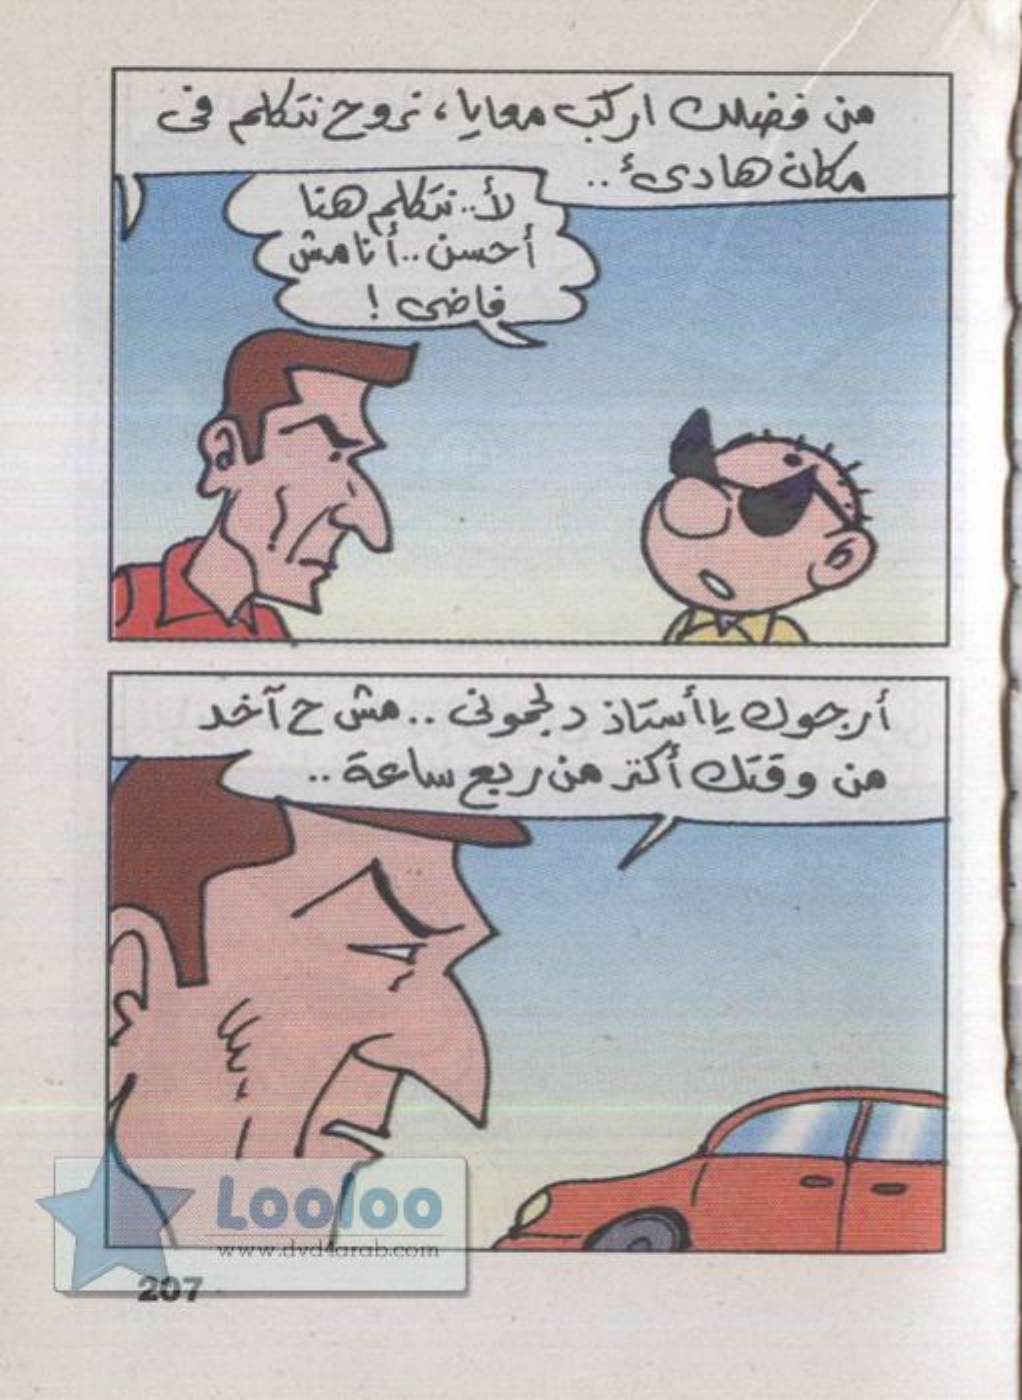 من فضلك اركب معايا، نروح نتكلم فى
مكان هادىء..
لأ.. نتكلم هنا
أحسن.. أنا مش
فاضى !
أرجوك يا أستاذ دلجمونى.. مش ح آخد
من وقتك أكتر من ربع ساعة..
Looloo
www.dvd4arab.com
207